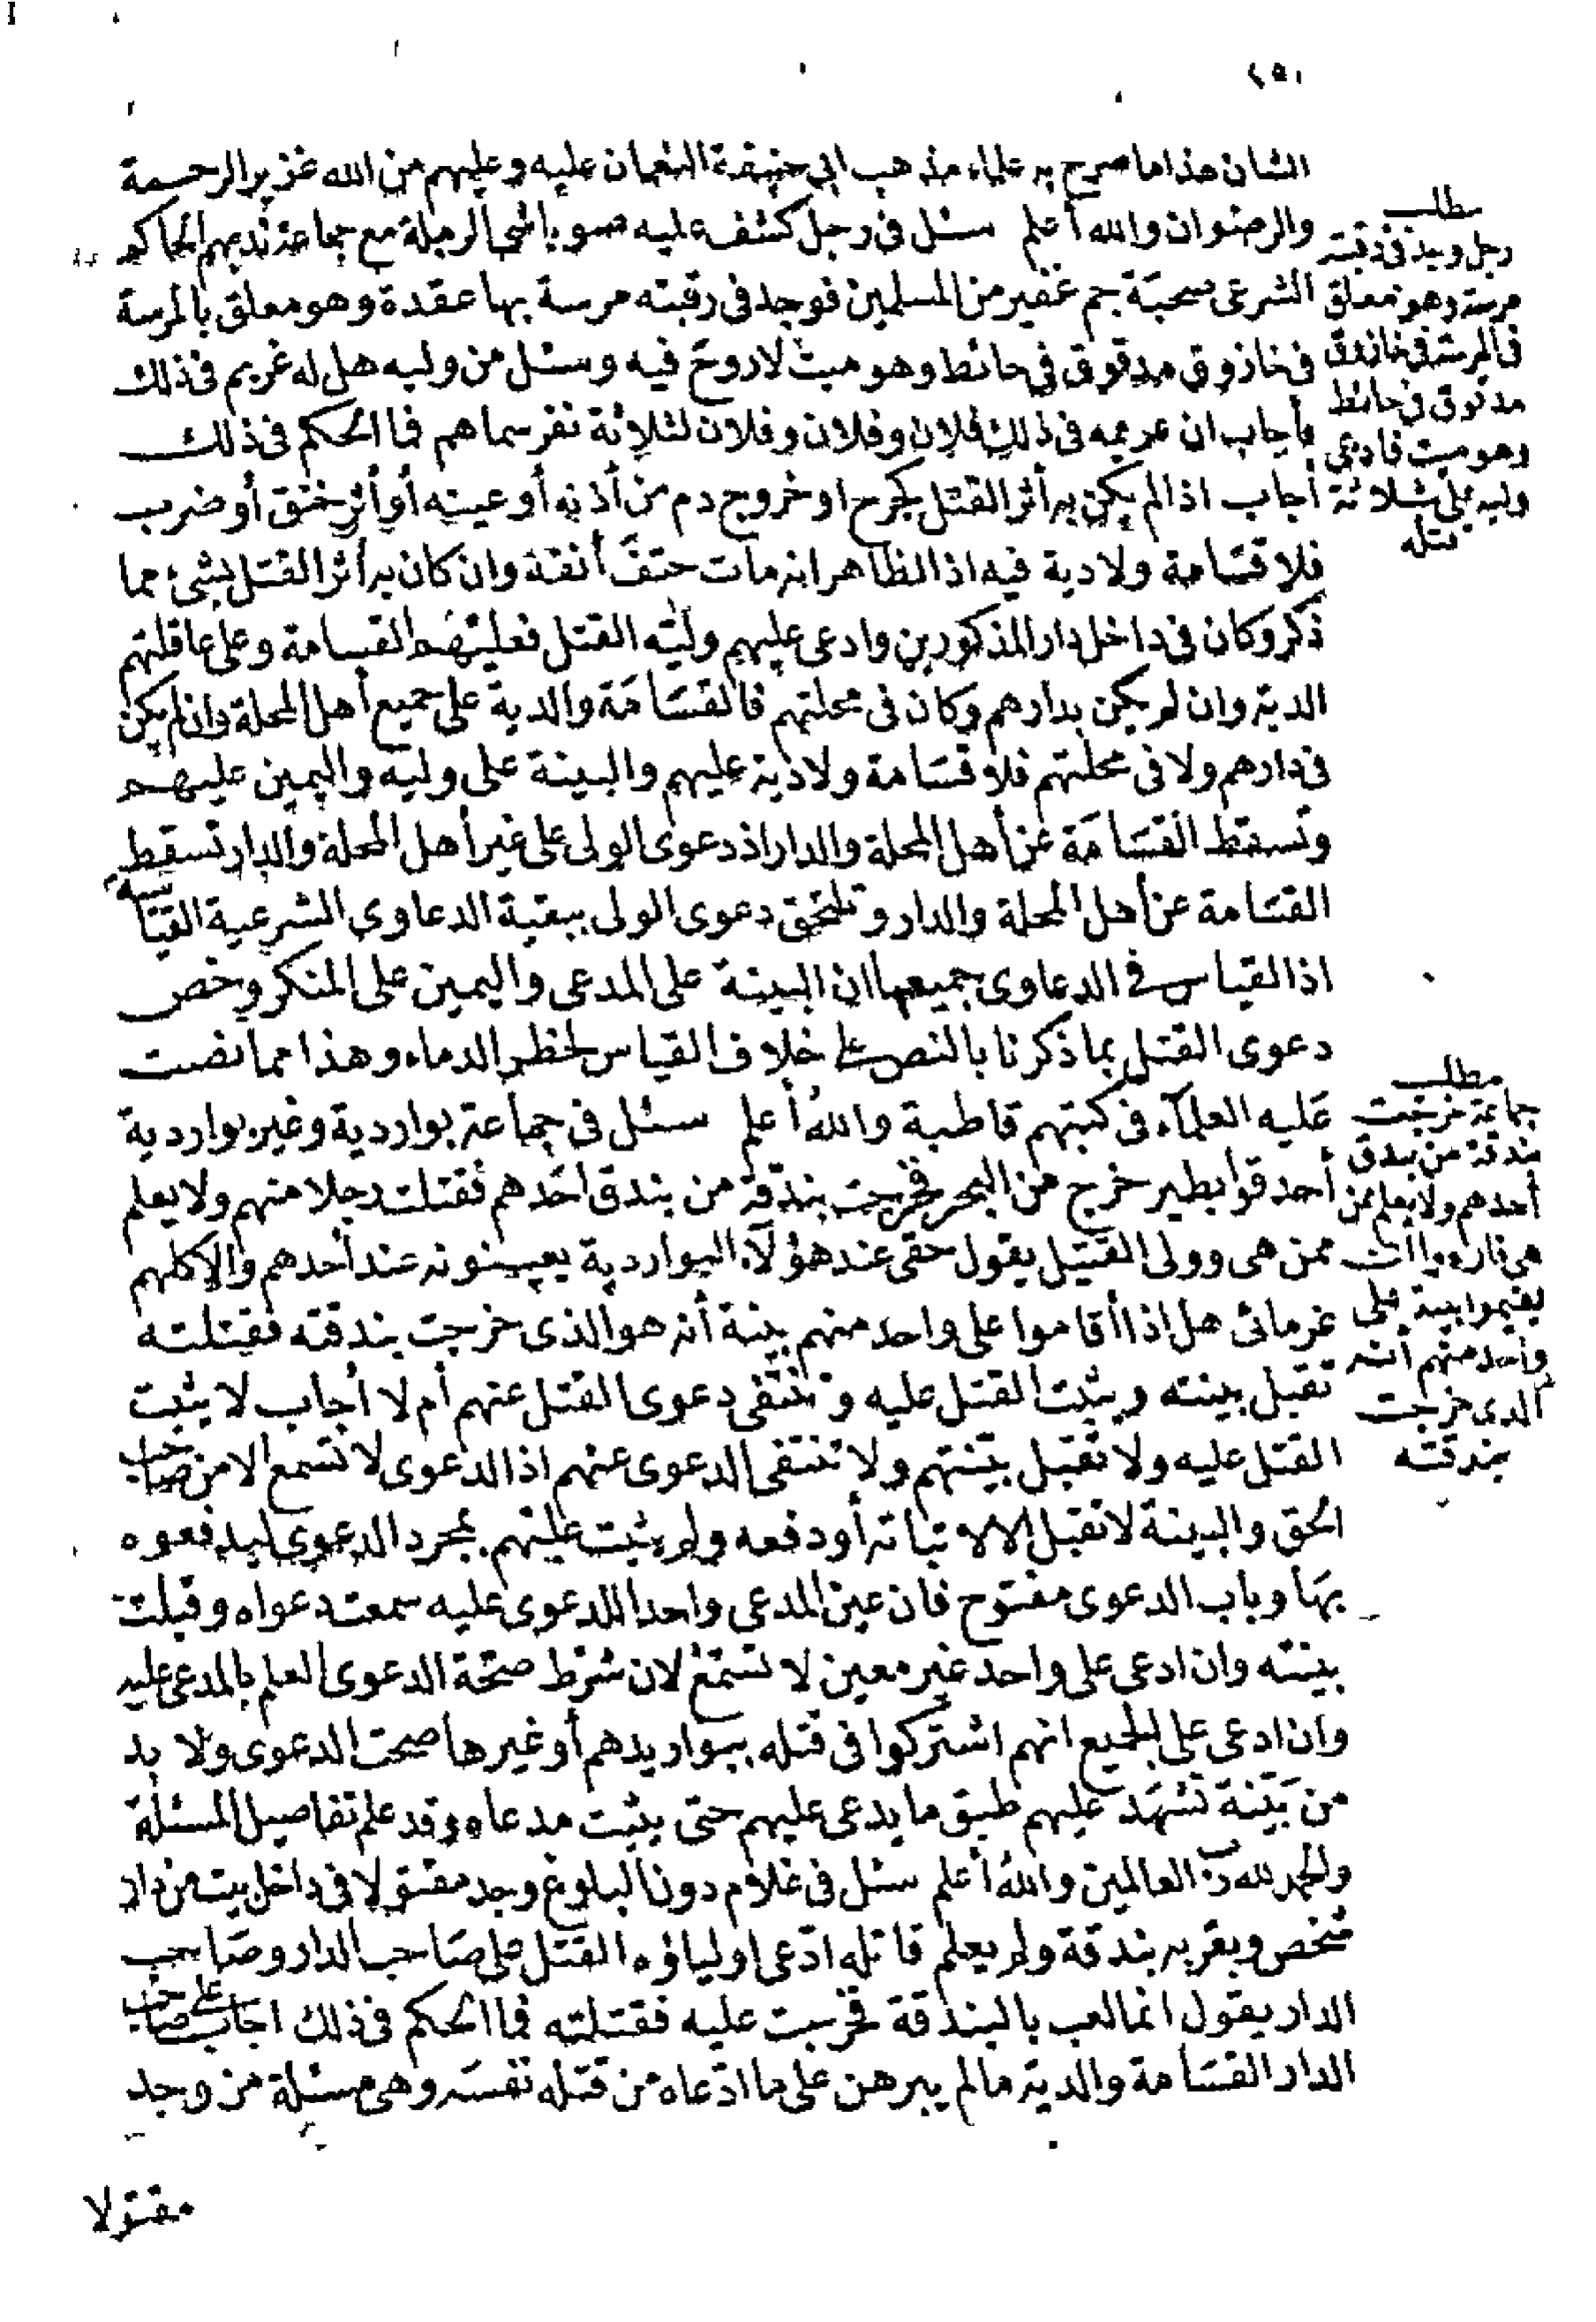 ٢٥١
الشان هذا ما صرح به علماء مذهب ابى حنيفة النعمان عليه وعليهم من الله غزير الرحمة
والرضوان والله أعلم سئل فى رجل كشف عليه صوباشى الرملة مع جماعة ندبهم الحاكم
الشرعى صحبة جم غفير من المسلمين فوجد فى رقبته مرسة بها عقدة وهو معلق بالمرسة
فى خازوق مدقوق فى حائط وهو ميت لا روح فيه وسئل من وليه هل له غريم فى ذلك
فأجاب ان غريمه فى ذلك فلان وفلان وفلان لثلاثة نفر سماهم فما الحكم فى ذلك
أجاب اذا لم يكن به أثر القتل كجرح او خروج دم من أذنه أو عينه أو أثر خنق أو ضرب
فلا قسامة ولا دية فيه اذ الظاهر انه مات حتف أنفه وان كان به أثر القتل بشئ مما
ذكر وكان فى داخل دار المذكورين وادعى عليهم وليه القتل فعليهم القسامة وعلى عاقلتهم
الدية وان لم يكن بدارهم وكان فى محلتهم فالقسامة والدية على جميع أهل المحلة وان لم يكن
فى دارهم ولا فى محلتهم فلا قسامة ولا دية عليهم والبينة على وليه واليمين عليهم
وتسقط القسامة عن أهل المحلة والدار اذ دعوى الولى على غير أهل المحلة والدار تسقط
القسامة عن أهل المحلة والدار وتلتحق دعوى الولى ببقية الدعاوى الشرعية القياسية
اذ القياس فى الدعاوى جميعها ان البينة على المدعى واليمين على المنكر وخص
دعوى القتل بما ذكرنا بالنص على خلاف القياس لخطر الدماء وهذا مما نصت
عليه العلماء فى كتبهم قاطبة والله أعلم سئل فى جماعة بواردية وغير بواردية
أحدقوا بطير خرج من البحر فخرجت بندقة من بندق احدهم فقتلت رجلا منهم ولا يعلم
ممن هى وولى القتيل يقول حقى عند هؤلاء البواردية يعينونه عند أحدهم والا كلهم
غرمائى هل اذا أقاموا على واحد منهم بينة أنه هو الذى خرجت بندقته فقتلته
تقبل بينته ويثبت القتل عليه وتنتفى دعوى القتل عنهم أم لا أجاب لا يثبت
القتل عليه ولا تقبل بينتهم ولا تنتفى الدعوى عنهم اذ الدعوى لا تسمع الا من صاحب
الحق والبينة لا تقبل الا لاثباته أو دفعه ولم يثبت عليهم بمجرد الدعوى ليدفعوه
بها وباب الدعوى مفتوح فان عين المدعى واحدا للدعوى عليه سمعت دعواه وقبلت
بينته وان ادعى على واحد غير معين لا تسمع لان شرط صحة الدعوى العلم بالمدعى عليه
وان ادعى على الجميع انهم اشتركوا فى قتله ببواريدهم أو غيرها صحت الدعوى ولا بد
من بينة تشهد عليهم طبق ما يدعى عليهم حتى يثبت مدعاه وقد علم تفاصيل المسئلة
والحمد لله رب العالمين والله أعلم سئل فى غلام دون البلوغ وجد مقتولا فى داخل بيت من دار
شخص وبقربه بندقة ولم يعلم قاتله ادعى اولياؤه القتل على صاحب الدار وصاحب
الدار يقول انما لعب بالبندقة فخربت عليه فقتلته فما الحكم فى ذلك اجاب على صاحب
الدار القسامة والدية ما لم يبرهن على ما ادعاه من قتله نفسه وهى مسئلة من وجد
مقتولا
مطلب
رجل وجد فى رقبته
مرسة وهو معلق
فى المرسة فى خازوق
مدقوق فى حائط
وهو ميت فادعى
وليه على ثلاثة
قتله
مطلب
جماعة خرجت
بندقة من بندق
أحدهم ولا يعلم ممن
هى فأرادوا أن
يقيموا بينة على
واحد منهم أنه
الذى خرجت
بندقته